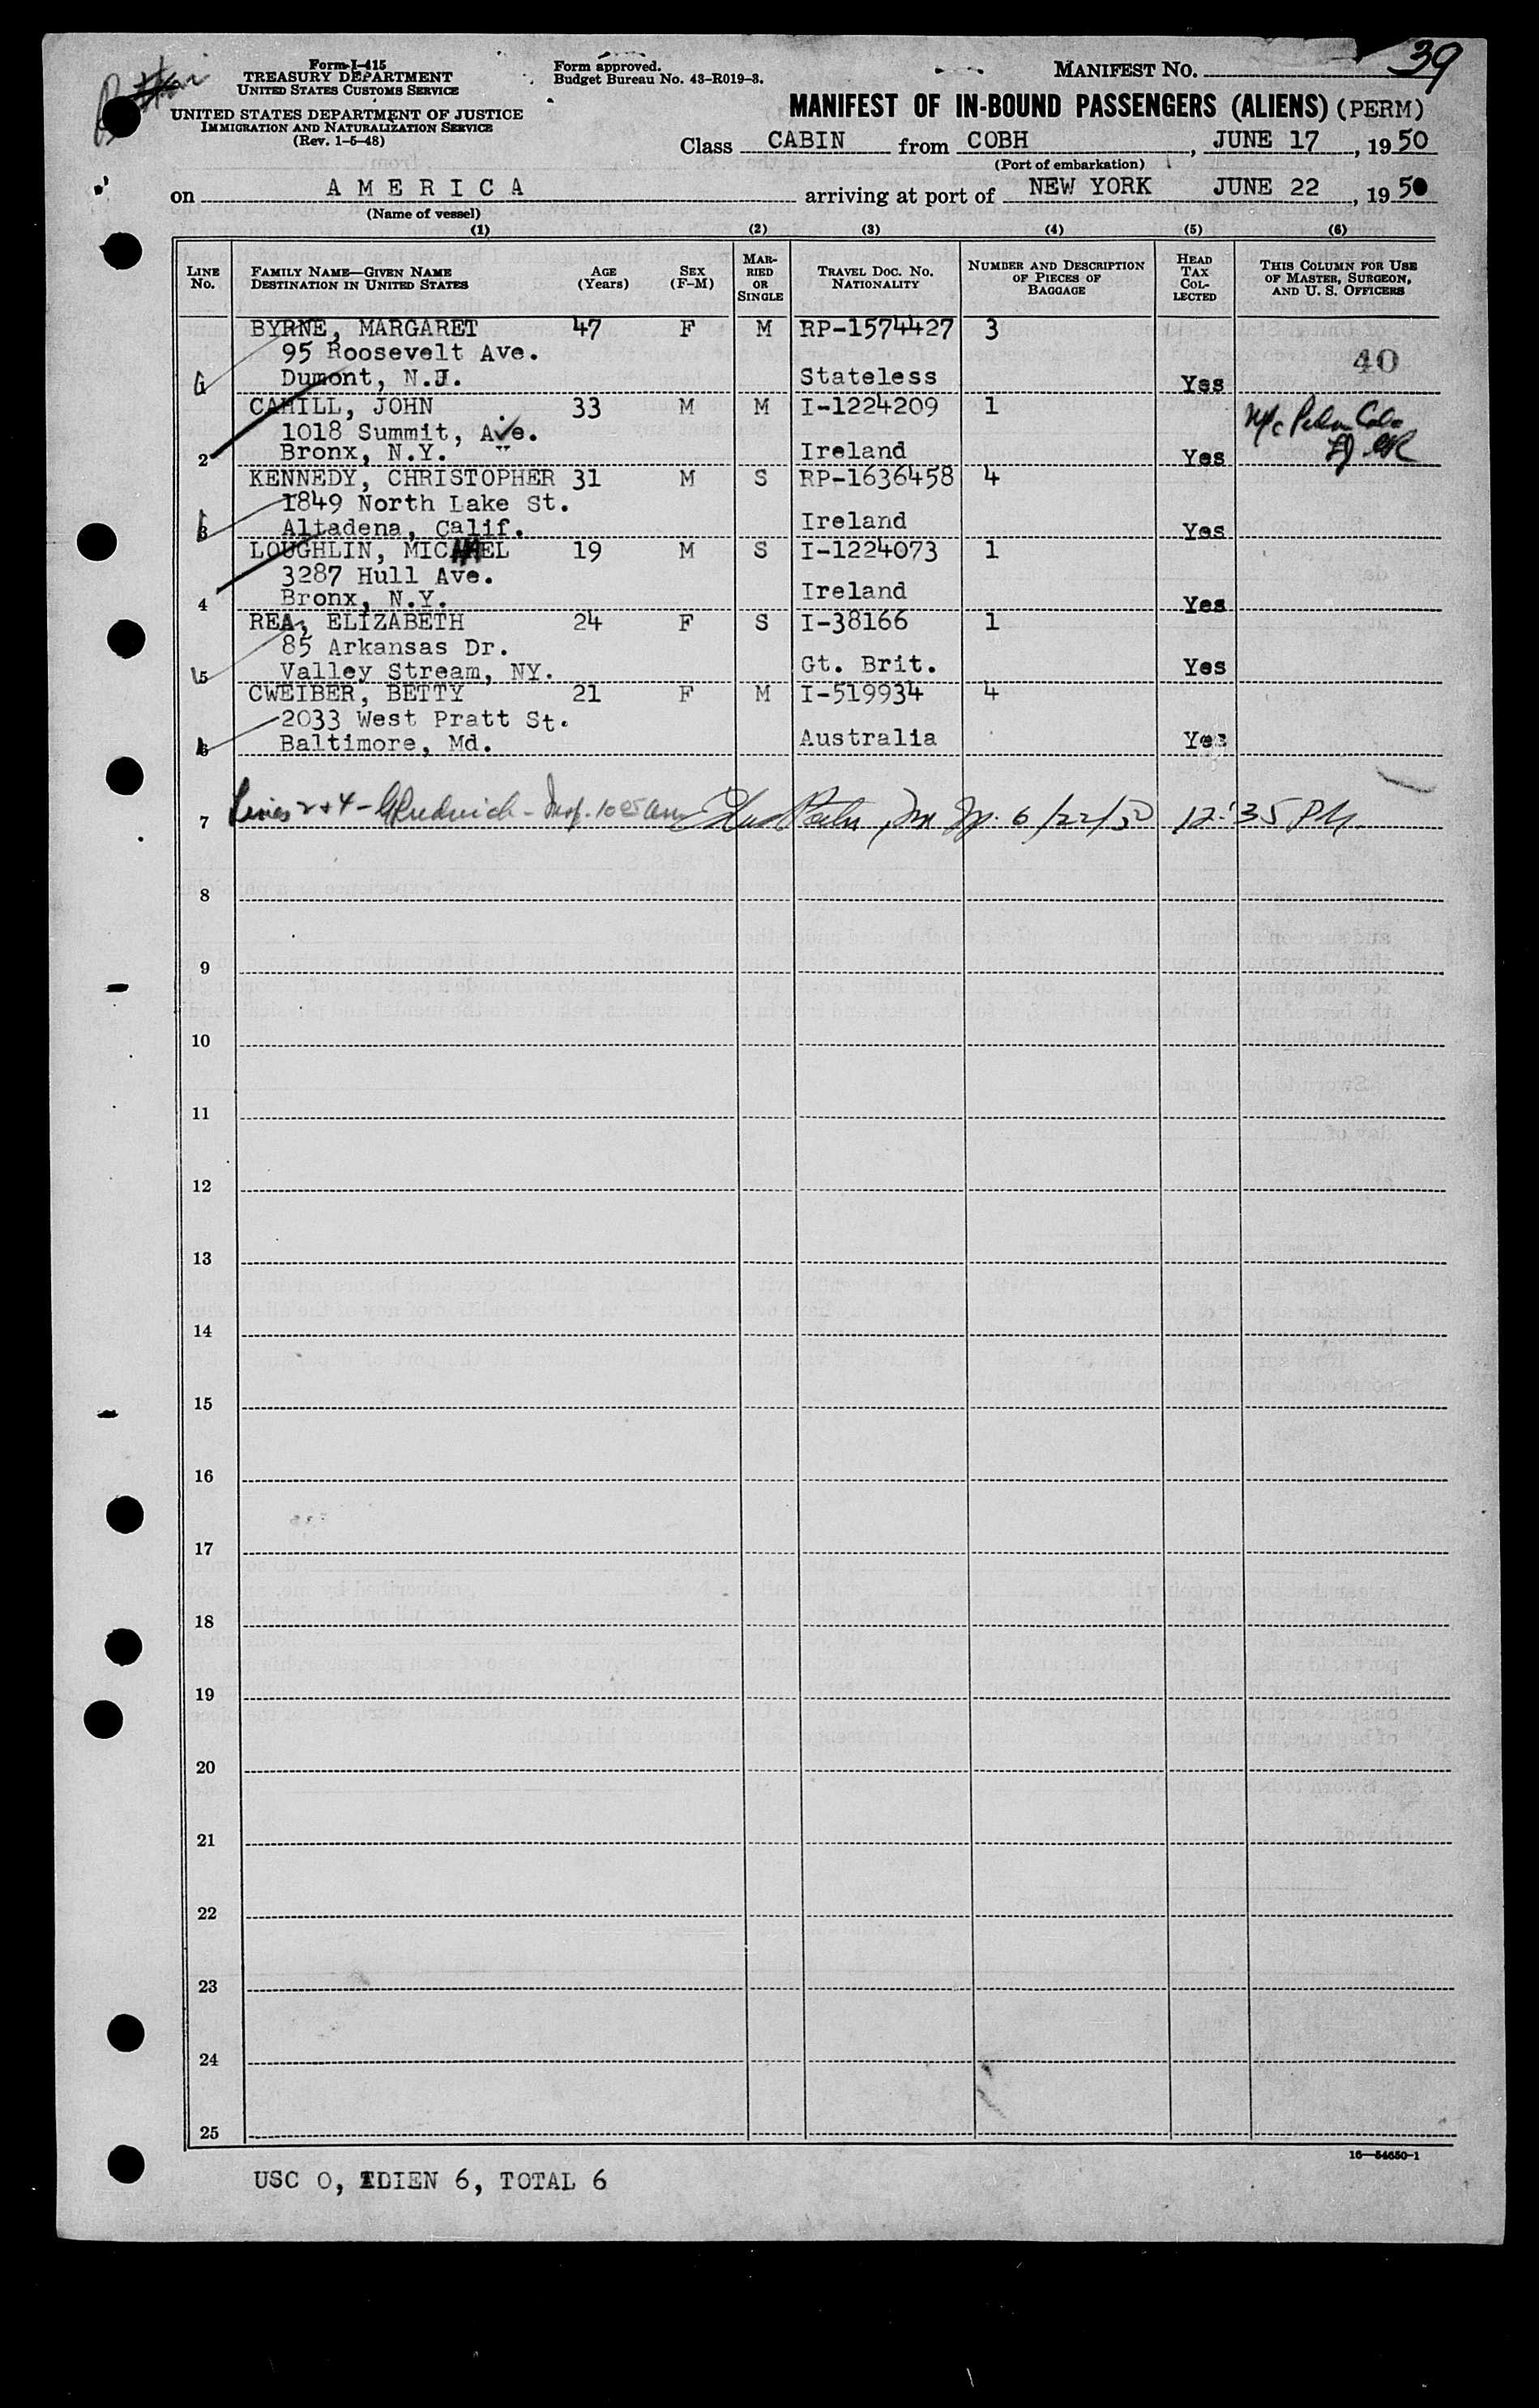 39
Form I-415
TREASURY DEPARTMENT
UNITED STATES CUSTOMS SERVICE
UNITED STATES DEPARTMENT OF JUSTICE
IMMIGRATION AND NATURALIZATION SERVICE
(Rev. 1-5-48)
Form approved.
Budget Bureau No. 43-R019-3.
MANIFEST No.
MANIFEST OF IN-BOUND PASSENGERS (ALIENS) (PERM)
Class CABIN from COBH, JUNE 17, 1950
(Port of embarkation)
on AMERICA arriving at port of NEW YORK JUNE 22, 1950
(Name of vessel)
(1) (2) (3) (4) (5) (6)
LINE No. FAMILY NAME—GIVEN NAME DESTINATION IN UNITED STATES AGE (Years) SEX (F-M) MARRIED OR SINGLE TRAVEL DOC. No. NATIONALITY NUMBER AND DESCRIPTION OF PIECES OF BAGGAGE HEAD TAX COLLECTED THIS COLUMN FOR USE OF MASTER, SURGEON, AND U. S. OFFICERS
BYRNE, MARGARET 47 F M RP-1574427 3
95 Roosevelt Ave. 40
Dumont, N.J. Stateless Yes
CAHILL, JOHN 33 M M I-1224209 1
1018 Summit, Ave.
2 Bronx, N.Y. Ireland Yes
KENNEDY, CHRISTOPHER 31 M S RP-1636458 4
1849 North Lake St.
3 Altadena, Calif. Ireland Yes
LOUGHLIN, MICHAEL 19 M S I-1224073 1
3287 Hull Ave.
4 Bronx, N.Y. Ireland Yes
REA, ELIZABETH 24 F S I-38166 1
85 Arkansas Dr.
5 Valley Stream, NY. Gt. Brit. Yes
CWEIBER, BETTY 21 F M I-519934 4
2033 West Pratt St.
6 Baltimore, Md. Australia Yes
7 Lines 2 & 4 - Insp. 6/22/50 12:35 PM
8
9
10
11
12
13
14
15
16
17
18
19
20
21
22
23
24
25
16—54650-1
USC 0, ALIEN 6, TOTAL 6